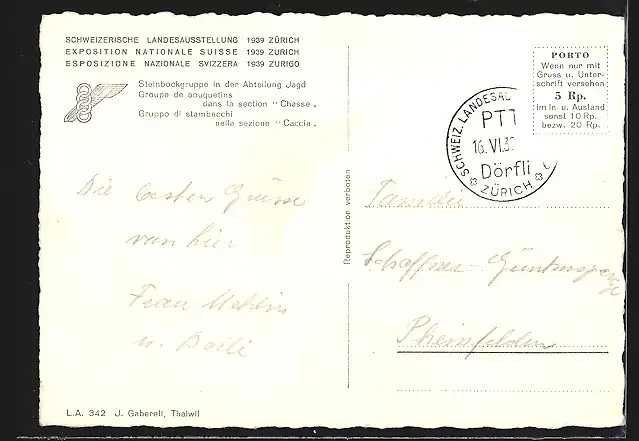 SCHWEIZERISCHE LANDESAUSSTELLUNG 1939 ZÜRICH
EXPOSITION NATIONALE SUISSE 1939 ZURICH
ESPOSIZIONE NAZIONALE SVIZZERA 1939 ZURIGO
Steinbockgruppe in der Abteilung Jagd
Groupe de bouquetins
dans la section "Chasse„
Gruppo di stambecchi
nella sezione "Caccia„
PORTO
Wenn nur mit
Gruss u. Unter-
schrift versehen
5 Rp.
Im In- u. Ausland
sonst 10 Rp.
bezw. 20 Rp.
SCHWEIZ. LANDESAU
PTT
16.VI.39
Dörfli
ZÜRICH
Die besten Grüsse
von hier
Frau
u.
Reproduktion verboten
Familie
Schaffner-
Rheinfelden
L.A. 342 J. Gaberell, Thalwil